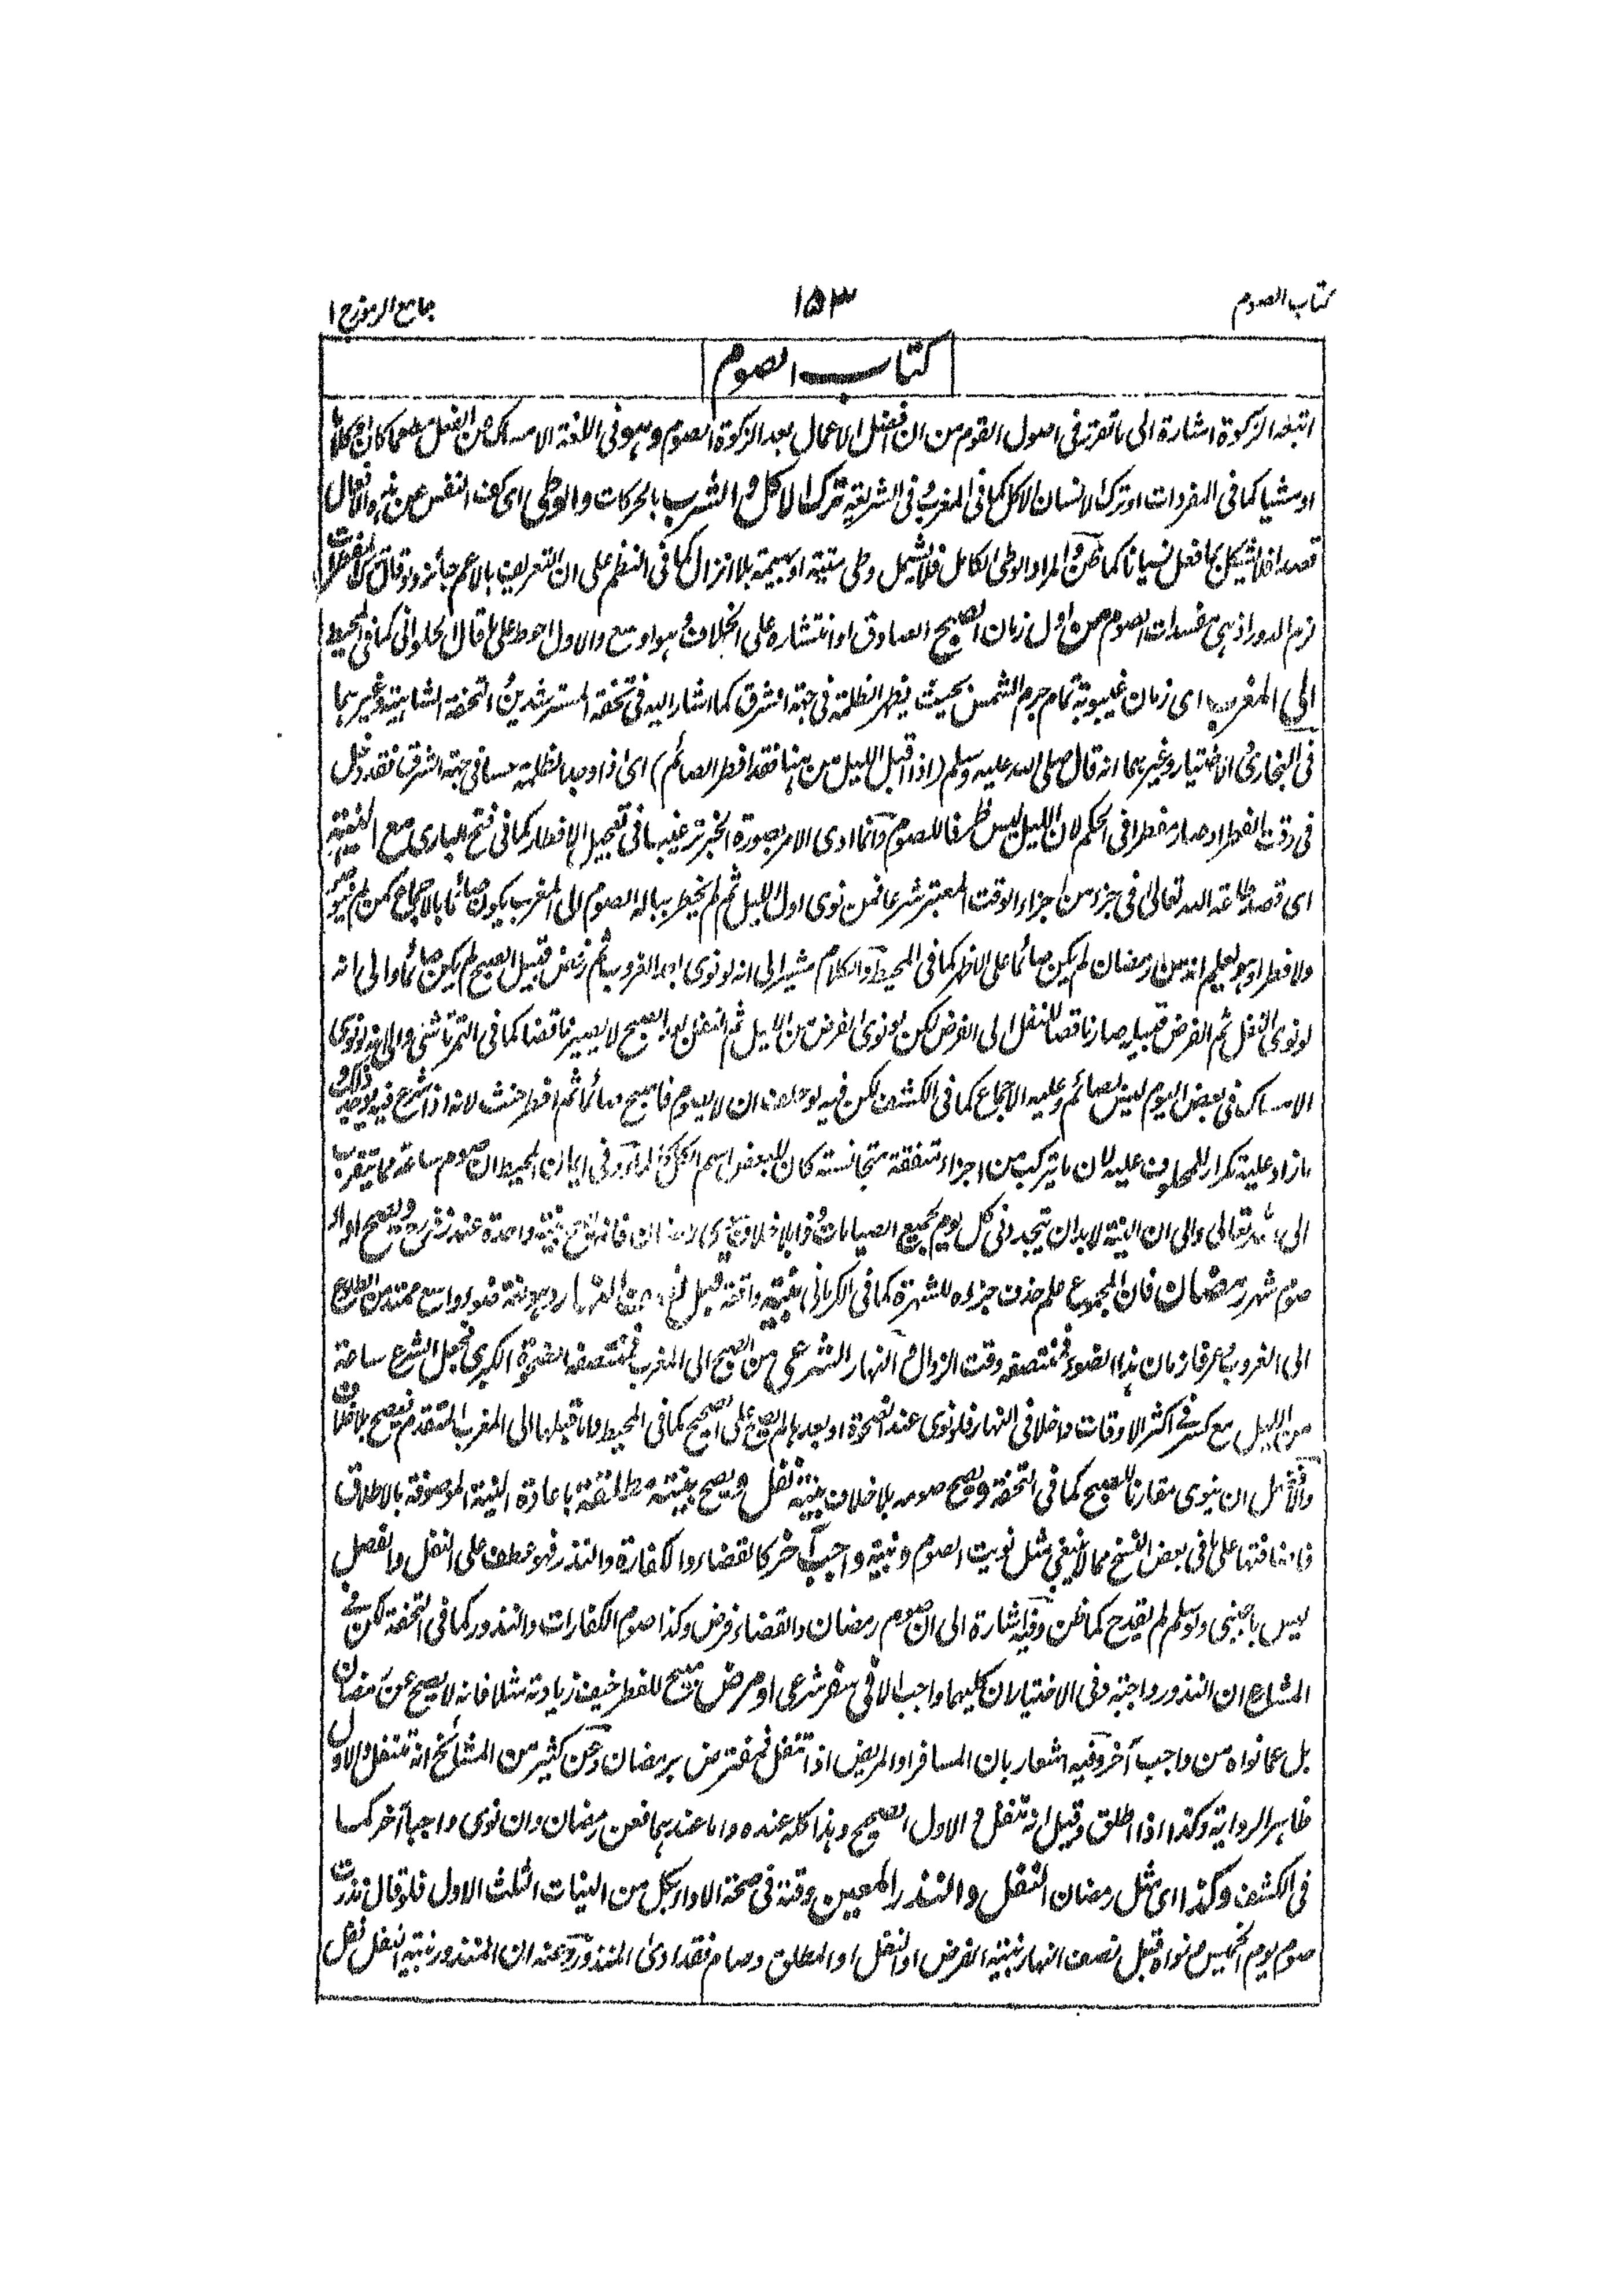 كتاب الصوم
١٥٣
جامع الرموز ج ١
كتاب الصوم
اتبعه الزكوة اشارة الى ما تقرر فى اصول القوم من ان افضل الاعمال بعد الزكوة الصوم وهو فى اللغة الامساك عن الفعل مطعما كان او كلاما
او مشيا كما فى المفردات او ترك الانسان الاكل كما فى المغرب وفى الشريعة ترك الاكل والشرب بالحركات والوطى اى كف النفس عن هذه الافعال
قصدا فلا يشكل بما فعل نسيانا كما ظن والمراد الوطى الكامل فلا يشمل وطى ميتة او بهيمة بلا انزال كما فى النظم على ان التعريف بالاعم جائز ولو قال ترك المفطرات
لزم الدور اذ هى مفسدات الصوم من اول زمان الصبح الصادق او انتشاره على الخلاف وهو اوسع والاول احوط على ما قال الحلوانى كما فى المحيط
الى المغرب اى زمان غيبوبة تمام جرم الشمس بحيث يظهر الظلمة فى جهة الشرق كما اشار اليه فى تحفة المسترشدين والتحفة الشاهية وغيرهما
فى البخارى والاختيار وغيرهما انه قال صلى الله عليه وسلم (اذا اقبل الليل من ههنا فقد افطر الصائم) اى اذا وجد الظلمة حسا فى جهة الشرق فقد دخل
فى وقت الفطر او صار مفطرا فى الحكم لان الليل ليس ظرفا للصوم وانما ادى الامر بصورة الخبر ترغيبا فى تعجيل الافطار كما فى فتح البارى مع النية
اى قصد طاعة الله تعالى فى جزء من اجزاء الوقت المعتبر شرعا فمن نوى اول الليل ثم لم يخطر بباله الصوم الى المغرب يكون صائما بالاجماع كمن لم ينو صوما
ولا فطرا وهو يعلم انه من رمضان لم يكن صائما على الاظهر كما فى المحيط والكلام مشير الى انه لو نوى بعد الغروب ثم رفض قبيل الصبح لم يكن صائما والى انه
لو نوى النفل ثم الفرض قبيله صار ناقضا للنفل الى الفرض لكن لو نوى الفرض من الليل ثم النفل بعد الصبح لا يصير ناقضا كما فى التمرتاشى والى انه لو نوى
الامساك فى بعض اليوم ليس بصائم وعليه الاجماع كما فى الكشف لكن فيه لو حلف ان لا يصوم فاصبح صائما ثم افطر حنث لانه اذا شرع فيه يوجد ذلك و
ما زاد عليه تكرار للمحلوف عليه لان ما يتركب من اجزاء متفقة متجانسة كان للبعض اسم الكل كالماء وفى ايمان المحيط ان صوم ساعة مما يتقرب
الى الله تعالى والى ان النية لا بد ان يتجدد فى كل يوم لجميع الصيامات وذا بلا خلاف فى سوى رمضان فانه يصح بنية واحدة عند زفر رح ويصح اداء
صوم شهر رمضان فان المجموع علم حذف جزءه للشهرة كما فى الكرمانى بنية واقعة قبل نصف النهار وهو لغة ضوء واسع ممتد من الطلوع
الى الغروب وعرفا زمان هذا الضوء فمنتصفه وقت الزوال والنهار الشرعى من الصبح الى المغرب فمنتصفه الضحوة الكبرى فجعل الشرع ساعة
من الليل مع كسر فى اكثر الاوقات داخلا فى النهار فلو نوى عند الضحوة او بعدها لم يصح على الصحيح كما فى المحيط واما قبلها الى المغرب المتقدم فيصح بلا خلاف
والافضل ان ينوى مقارنا للصبح كما فى التحفة ويصح صومه بلا خلاف بنية نفل ويصح بنية مطلقة باعادة النية الموصوفة بالاطلاق
فاضافتها على ما فى بعض النسخ مما لا ينبغى مثل نويت الصوم وبنية واجب آخر كالقضاء والكفارة والنذر فهو عطف على النفل والفصل
ليس باجنبى ولو سلم لم يقدح كما ظن وفيه اشارة الى ان صوم رمضان والقضاء فرض وكذا صوم الكفارات والنذور كما فى التحفة لكن فى
المشارع ان النذور واجبة وفى الاختيار ان كليهما واجب الا فى سفر شرعى او مرض مبيح للفطر خيف زيادته مثلا فانه لا يصح عن رمضان
بل عما نواه من واجب آخر وفيه اشعار بان المسافر والمريض اذا تنفل فمفترض برمضان وعن كثير من المشائخ انه متنفل والاول
ظاهر الرواية وكذا اذا اطلق وقيل انه متنفل والاول الصحيح وهذا كله عنده واما عندهما فعن رمضان وان نوى واجبا آخر كما
فى الكشف وكذا اى مثل رمضان النفل والنذر المعين وقته فى صحة الاداء بكل من النيات الثلث الاول فلو قال نذرت
صوم يوم الخميس ونواه قبل نصف النهار بنية الفرض او النفل او المطلق وصام فقد ادى المنذور وعنه ان المنذور بنية النفل نفل